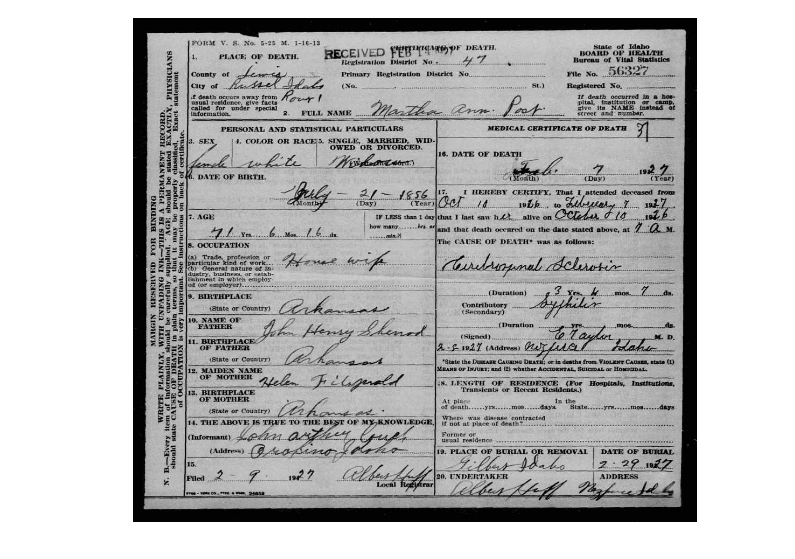 FORM V. S. No. 5-25 M. 1-16-13
CERTIFICATE OF DEATH.
RECEIVED FEB 14 1927
State of Idaho
BOARD OF HEALTH
Bureau of Vital Statistics
1. PLACE OF DEATH.
Registration District No. 47
County of Lewis
Primary Registration District No.
File No. 56327
City of Russel Idaho
(No. St.)
Registered No.
If death occurs away from usual residence, give facts called for under special information.
If death occurred in a hospital, institution or camp, give its NAME instead of street and number.
2. FULL NAME Martha Ann Post
PERSONAL AND STATISTICAL PARTICULARS
3. SEX female
4. COLOR OR RACE white
5. SINGLE, MARRIED, WIDOWED OR DIVORCED.
6. DATE OF BIRTH.
July - 21 - 1856
(Month) (Day) (Year)
7. AGE
71 Yrs. 6 Mos. 16 ds.
IF LESS than 1 day how many hrs. or min.?
8. OCCUPATION
(a) Trade, profession or particular kind of work House wife
(b) General nature of industry, business, or establishment in which employed (or employer)
9. BIRTHPLACE
(State or Country) Arkansas
10. NAME OF FATHER John Henry Sherod
11. BIRTHPLACE OF FATHER
(State or Country) Arkansas
12. MAIDEN NAME OF MOTHER Helen Fitzgerald
13. BIRTHPLACE OF MOTHER
(State or Country) Arkansas.
14. THE ABOVE IS TRUE TO THE BEST OF MY KNOWLEDGE.
(Informant) John Arthur
(Address) Orofino Idaho
15.
Filed 2 - 9 1927 Albert Huff
Local Registrar
MEDICAL CERTIFICATE OF DEATH
16. DATE OF DEATH
Feb. 7 1927
(Month) (Day) (Year)
17. I HEREBY CERTIFY, That I attended deceased from
Oct 10 1926 to February 7 1927
that I last saw her alive on October 10 1926
and that death occurred on the date stated above, at 7 A M.
The CAUSE OF DEATH* was as follows:
Cerebrospinal Sclerosis
(Duration) 3 Yrs. 4 mos. 7 ds.
Contributory Syphilis
(Secondary)
(Duration yrs. mos. ds.
(Signed) E Taylor M. D.
1927 (Address) Idaho
*State the DISEASE CAUSING DEATH; or in deaths from VIOLENT CAUSES, state (1) MEANS OF INJURY; and (2) whether ACCIDENTAL, SUICIDAL or HOMICIDAL.
18. LENGTH OF RESIDENCE (For Hospitals, Institutions, Transients or Recent Residents.)
At place of death yrs. mos. days
In the State yrs. mos. days
Where was disease contracted if not at place of death?
Former or usual residence
19. PLACE OF BURIAL OR REMOVAL
Gilbert Idaho
DATE OF BURIAL
2-29 1927
20. UNDERTAKER
Albert Huff
ADDRESS
Nezperce Idaho
MARGIN RESERVED FOR BINDING
WRITE PLAINLY, WITH UNFADING INK—THIS IS A PERMANENT RECORD.
N. B.—Every item of information should be carefully supplied. AGE should be stated EXACTLY. PHYSICIANS
should state CAUSE OF DEATH in plain terms, so that it may be properly classified. Exact statement
of OCCUPATION is very important. See instructions on back of certificate.